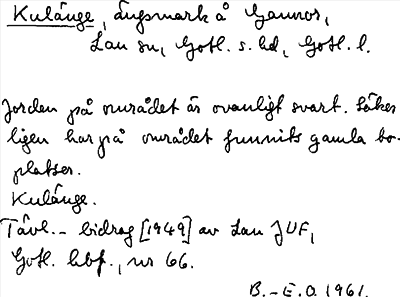 Kulänge, ängsmark å Gannor,
Lau sn, Gotl. s. hd, Gotl. l.
Jorden på området är ovanligt svart. Säker
ligen har på området funnits gamla bo-
platser.
Kulänge.
Tävl.- bidrag [1949] av Lau JUF,
Gotl. hbf., nr 66.
B.-E.O 1961.